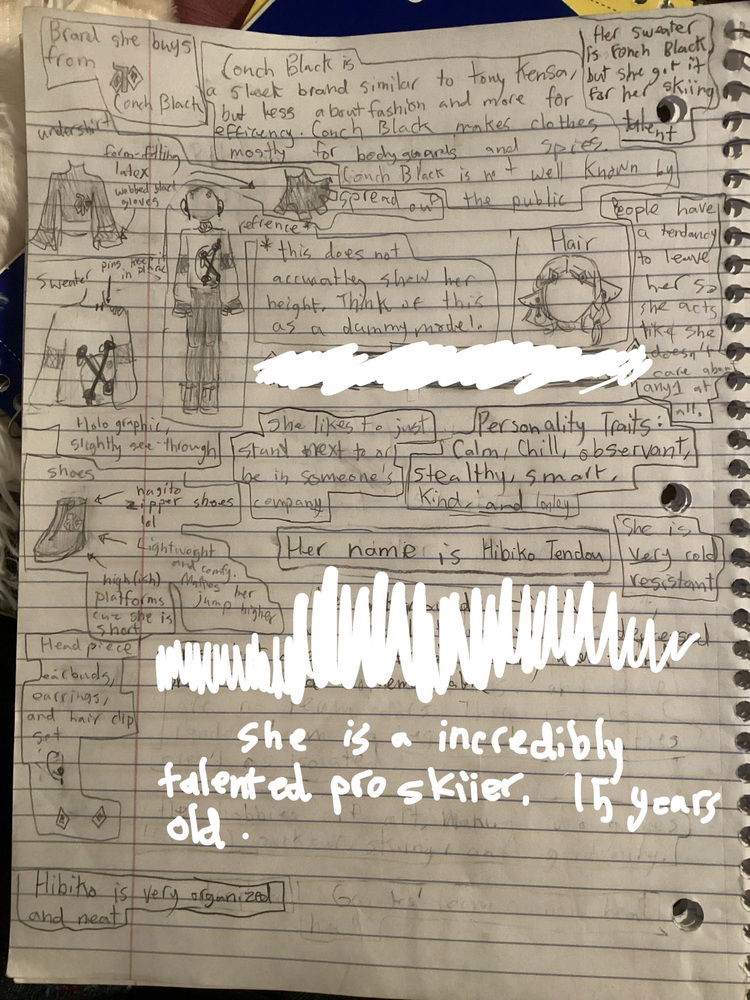 Brand she buys
from
Conch Black
Conch Black is
a sleek brand similar to tony Kensa,
but less about fashion and more for
efficiency. Conch Black makes clothes
mostly for bodyguards and spies.
Conch Black is not well known by
the public
Her sweater
is Conch Black,
but she got it
for her skiing
talent
undershirt
form-fitting
latex
webbed
gloves
spread out
refrence*
*this does not
accuratley show her
height. Think of this
as a dummy model.
Hair
People have
a tendancy
to leave
her so
she acts
like she
doesn't
care about
any1 at
all.
Sweater
pins keep it
in place
Holographic,
slightly see-through
She likes to just
stand next to or
be in someone's
company
Personality Traits:
Calm, Chill, observant,
stealthy, smart,
Kind, and lonley
shoes
nagito
zipper shoes
lol
Lightweight
and comfy.
Makes her
jump higher
high(ish)
platforms
cuz she is
short
Her name is Hibiko Tendou
She is
very cold
resistant
Head piece
earbuds,
earrings,
and hair clip
set
She is a incredibly
talented pro skiier. 15 years
old.
Hibiko is very organized
and neat